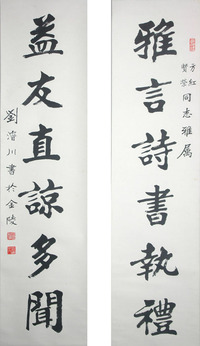 雅言詩書執禮
方紅
賢瑩同惠雅属
益友直諒多聞
劉濬川書於金陵